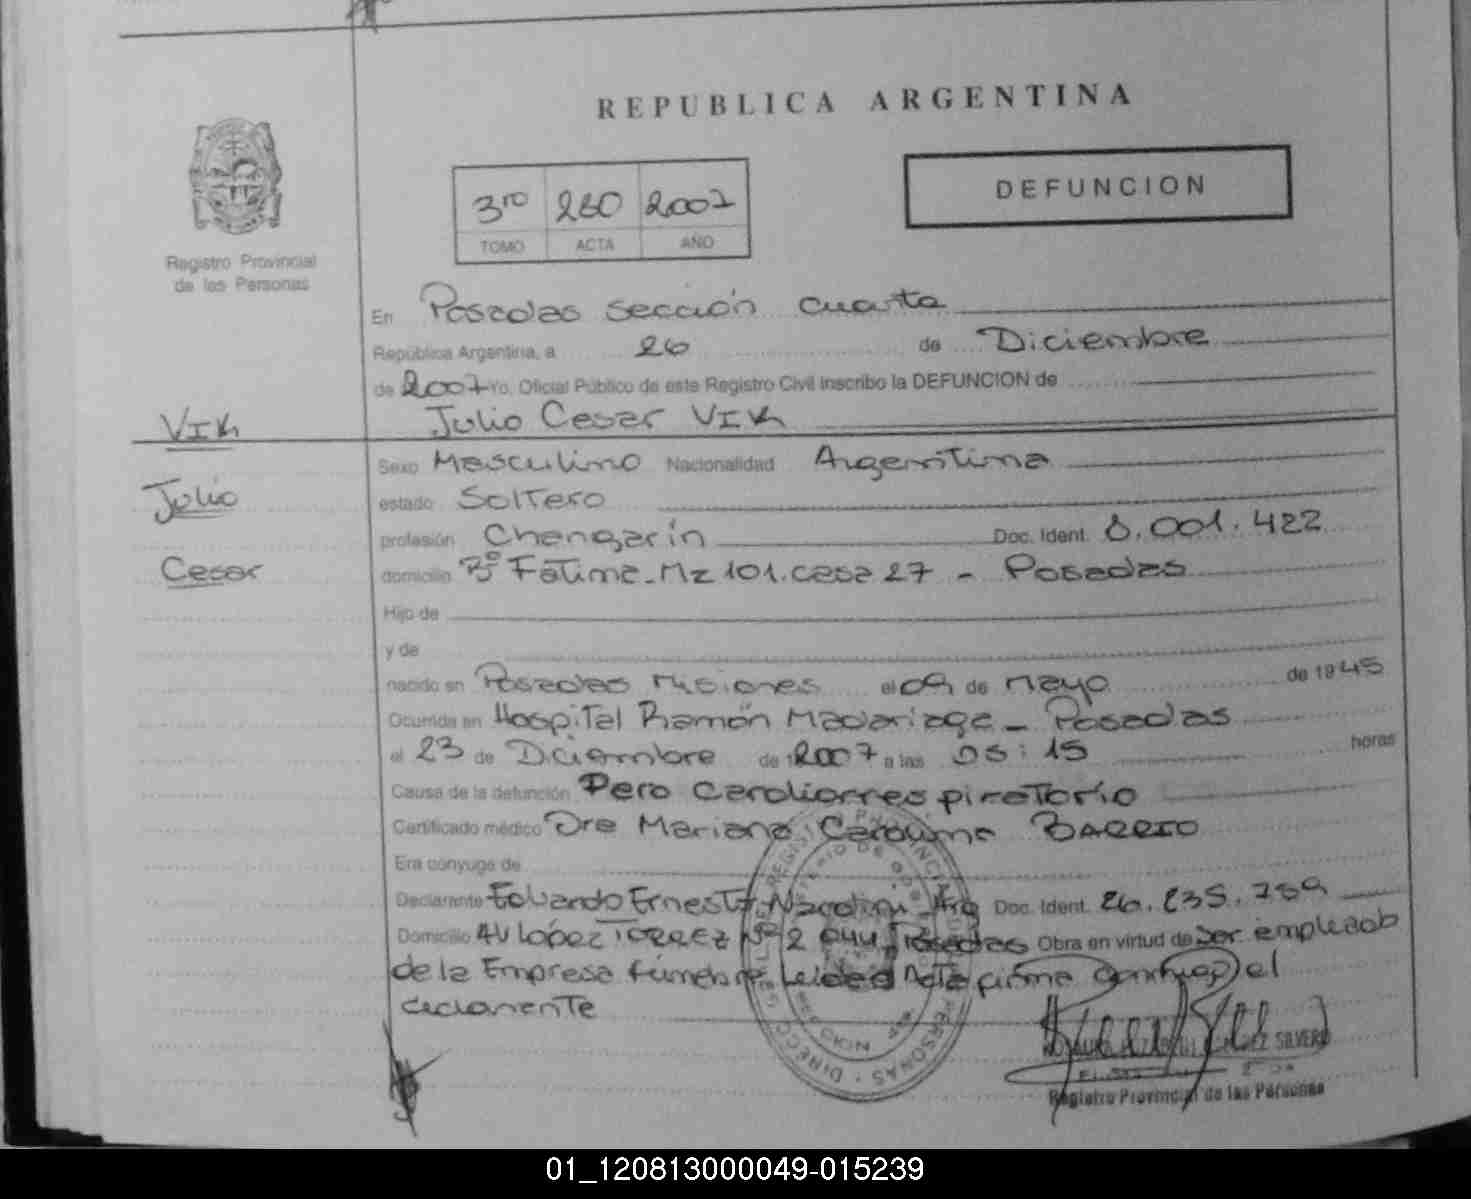 REPUBLICA ARGENTINA
DEFUNCION
3ro 260 2007
TOMO ACTA AÑO
Registro Provincial
de las Personas
En Posadas sección cuarta
República Argentina, a 26 de Diciembre
de 2007 Yo, Oficial Público de este Registro Civil inscribo la DEFUNCION de
Vik Julio Cesar Vik
Sexo Masculino Nacionalidad Argentina
Julio
estado Soltero
profesión Changarín Doc. Ident. 8.001.422
Cesar
domicilio Bº Fátima-Mz 101.casa 27 - Posadas
Hijo de
y de
nacido en Posadas Misiones el 09 de Mayo de 1945
Ocurrida en Hospital Ramón Madariaga - Posadas
el 23 de Diciembre de 2007 a las 05:15 horas
Causa de la defunción Paro Cardiorrespiratorio
Certificado médico Dra Mariana Carolina BARRIO
Era cónyuge de
Declarante Eduardo Ernesto Arg Doc. Ident. 26.235.789
Domicilio AV López Torrez Nº 2 Posadas Obra en virtud de ser empleado
de la Empresa fúnebre Leída el Acta firma conmigo el
declarante
SILVERO
Registro Provincial de las Personas
01_120813000049-015239